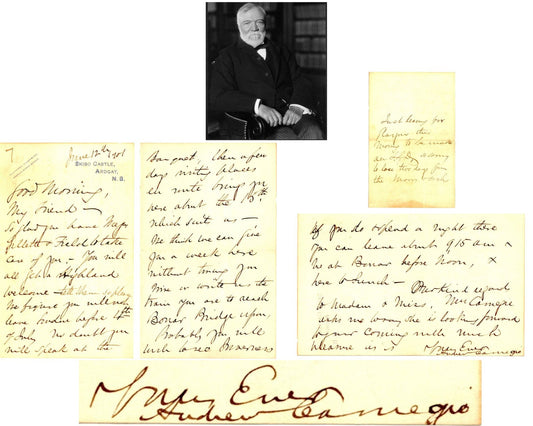 June 12th 1901
SKIBO CASTLE,
ARDGAY,
N.B.
Good Morning,
My friend —
So glad you have Major
& Field to take
care of you — You will
all get a Highland
welcome —
We figure you will not
leave London before 4th
of July No doubt you
will speak at the
Banquet, then a few
days visiting places
en route bring you
here about the 15th
which suits us —
We think we can give
you a week here
without tiring you
Wire or write us the
train you are to reach
Bonar Bridge upon,
Probably you will
wish to see Inverness
If you do & spend a night there
you can leave about 9 15 a m &
be at Bonar before Noon, &
here to Lunch — Our kind regards
to Madam & Miss, Mrs Carnegie
asks me to say she is looking forward
to your coming with much
pleasure as is
Yours Ever
Andrew Carnegie
Just leaving for
Glasgow the
to be made
an LLD, sorry
to lose two days from
the
Yours Ever
Andrew Carnegie